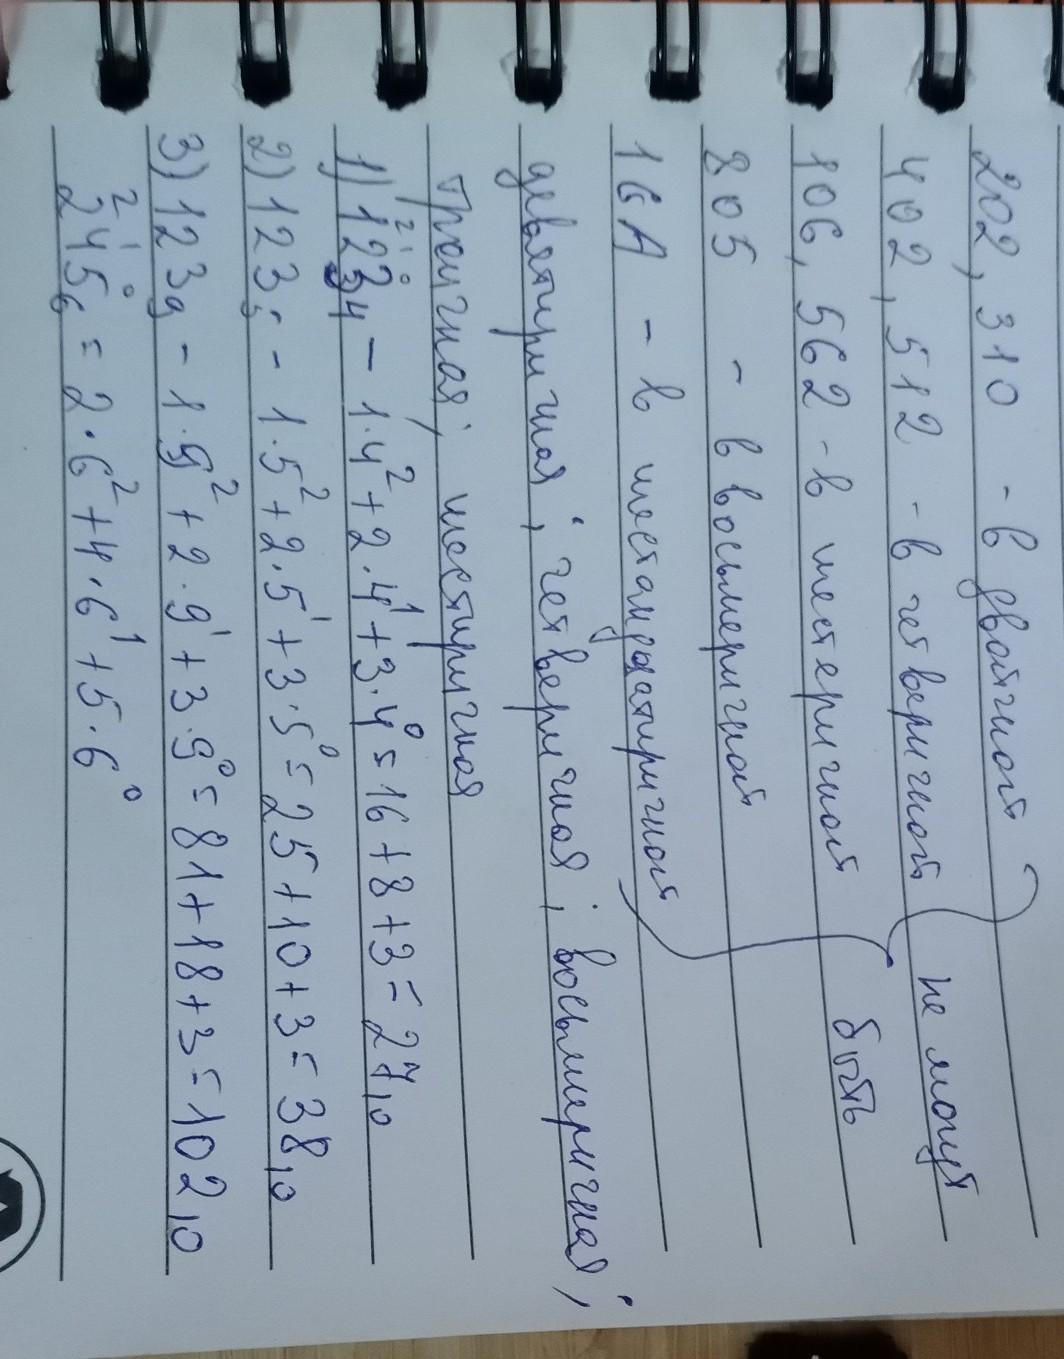 202, 310 - в двоичной
402, 512 - в четверичной } не могут
106, 562 - в шестеричной быть
805 - в восьмеричной
16A - в шестандцатиричной
девятиричная; четверичная; восьмиричная;
троичная; шестиричная
1) 1²2¹3⁰₄ - 1·4² + 2·4¹ + 3·4⁰ = 16 + 8 + 3 = 27₁₀
2) 123₅ - 1·5² + 2·5¹ + 3·5⁰ = 25 + 10 + 3 = 38₁₀
3) 123₉ - 1·9² + 2·9¹ + 3·9⁰ = 81 + 18 + 3 = 102₁₀
2²4¹5⁰₆ = 2·6² + 4·6¹ + 5·6⁰